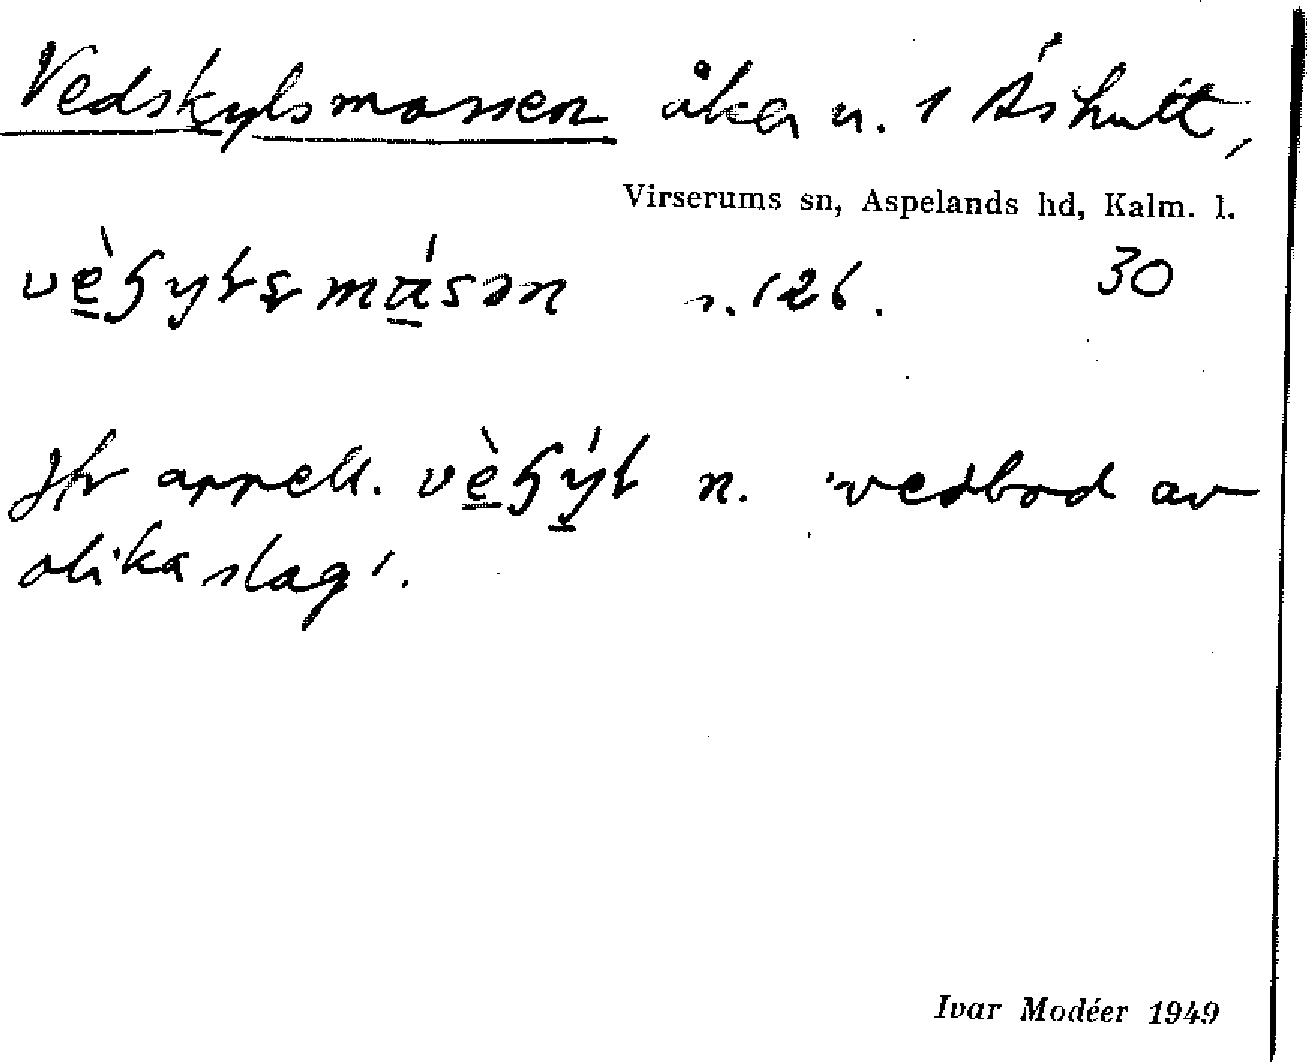 Vedskylsmossen åker n. 1 Åshult,
Virserums sn, Aspelands hd, Kalm. l.
s. 126. 30
Jfr appell. n. 'vedbod av
olika slag'.
Ivar Modéer 1949